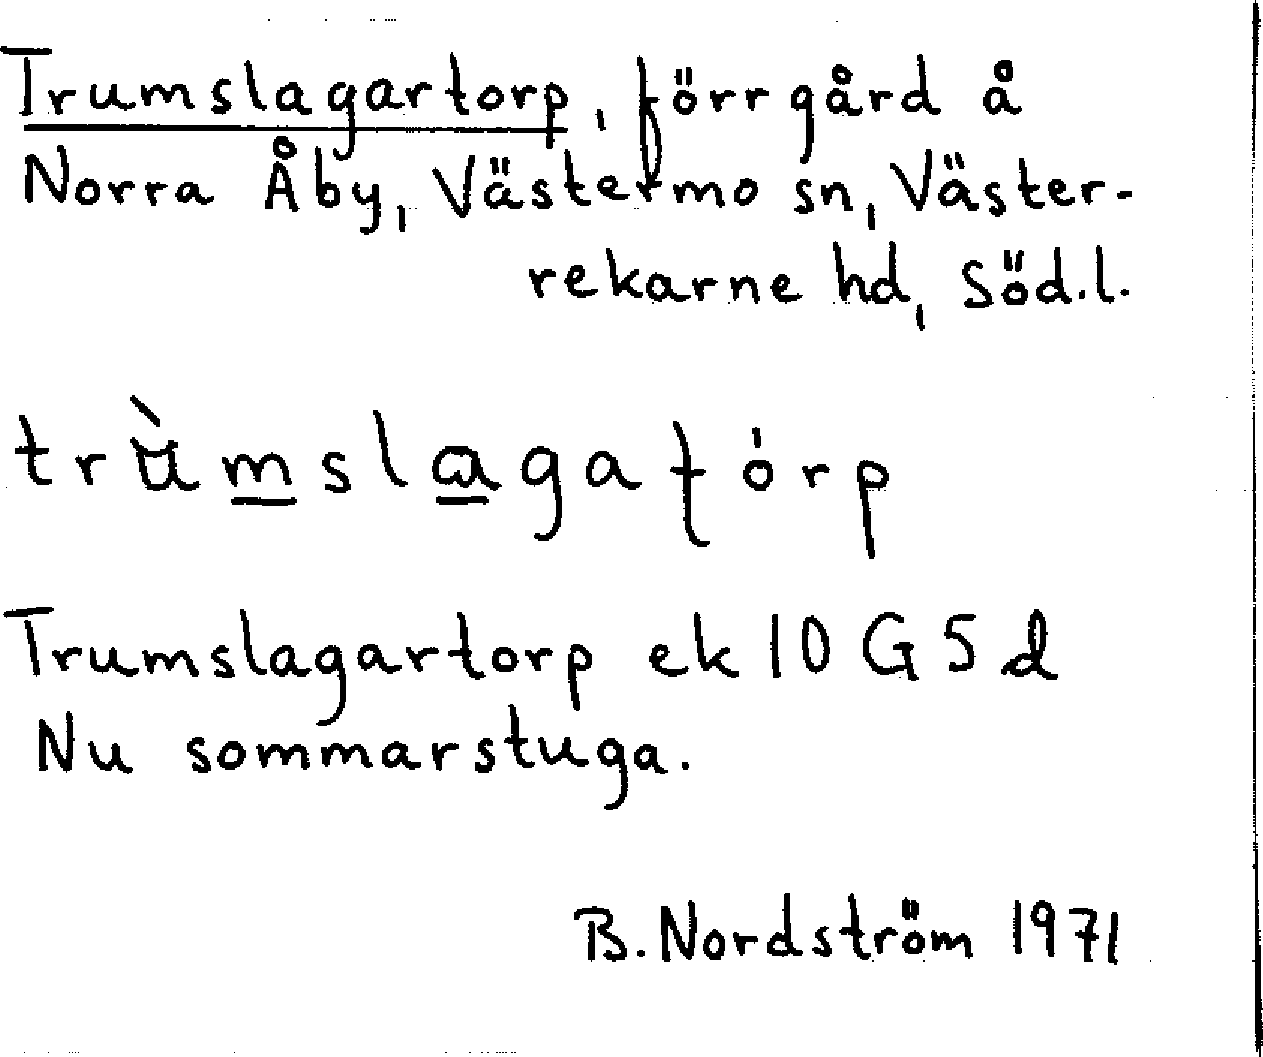 Trumslagartorp, förrgård å
Norra Åby, Västermo sn, Väster-
rekarne hd, Söd.l.
trùm̲sla̲gaʈórp
Trumslagartorp ek 10 G 5 d
Nu sommarstuga.
B. Nordström 1971